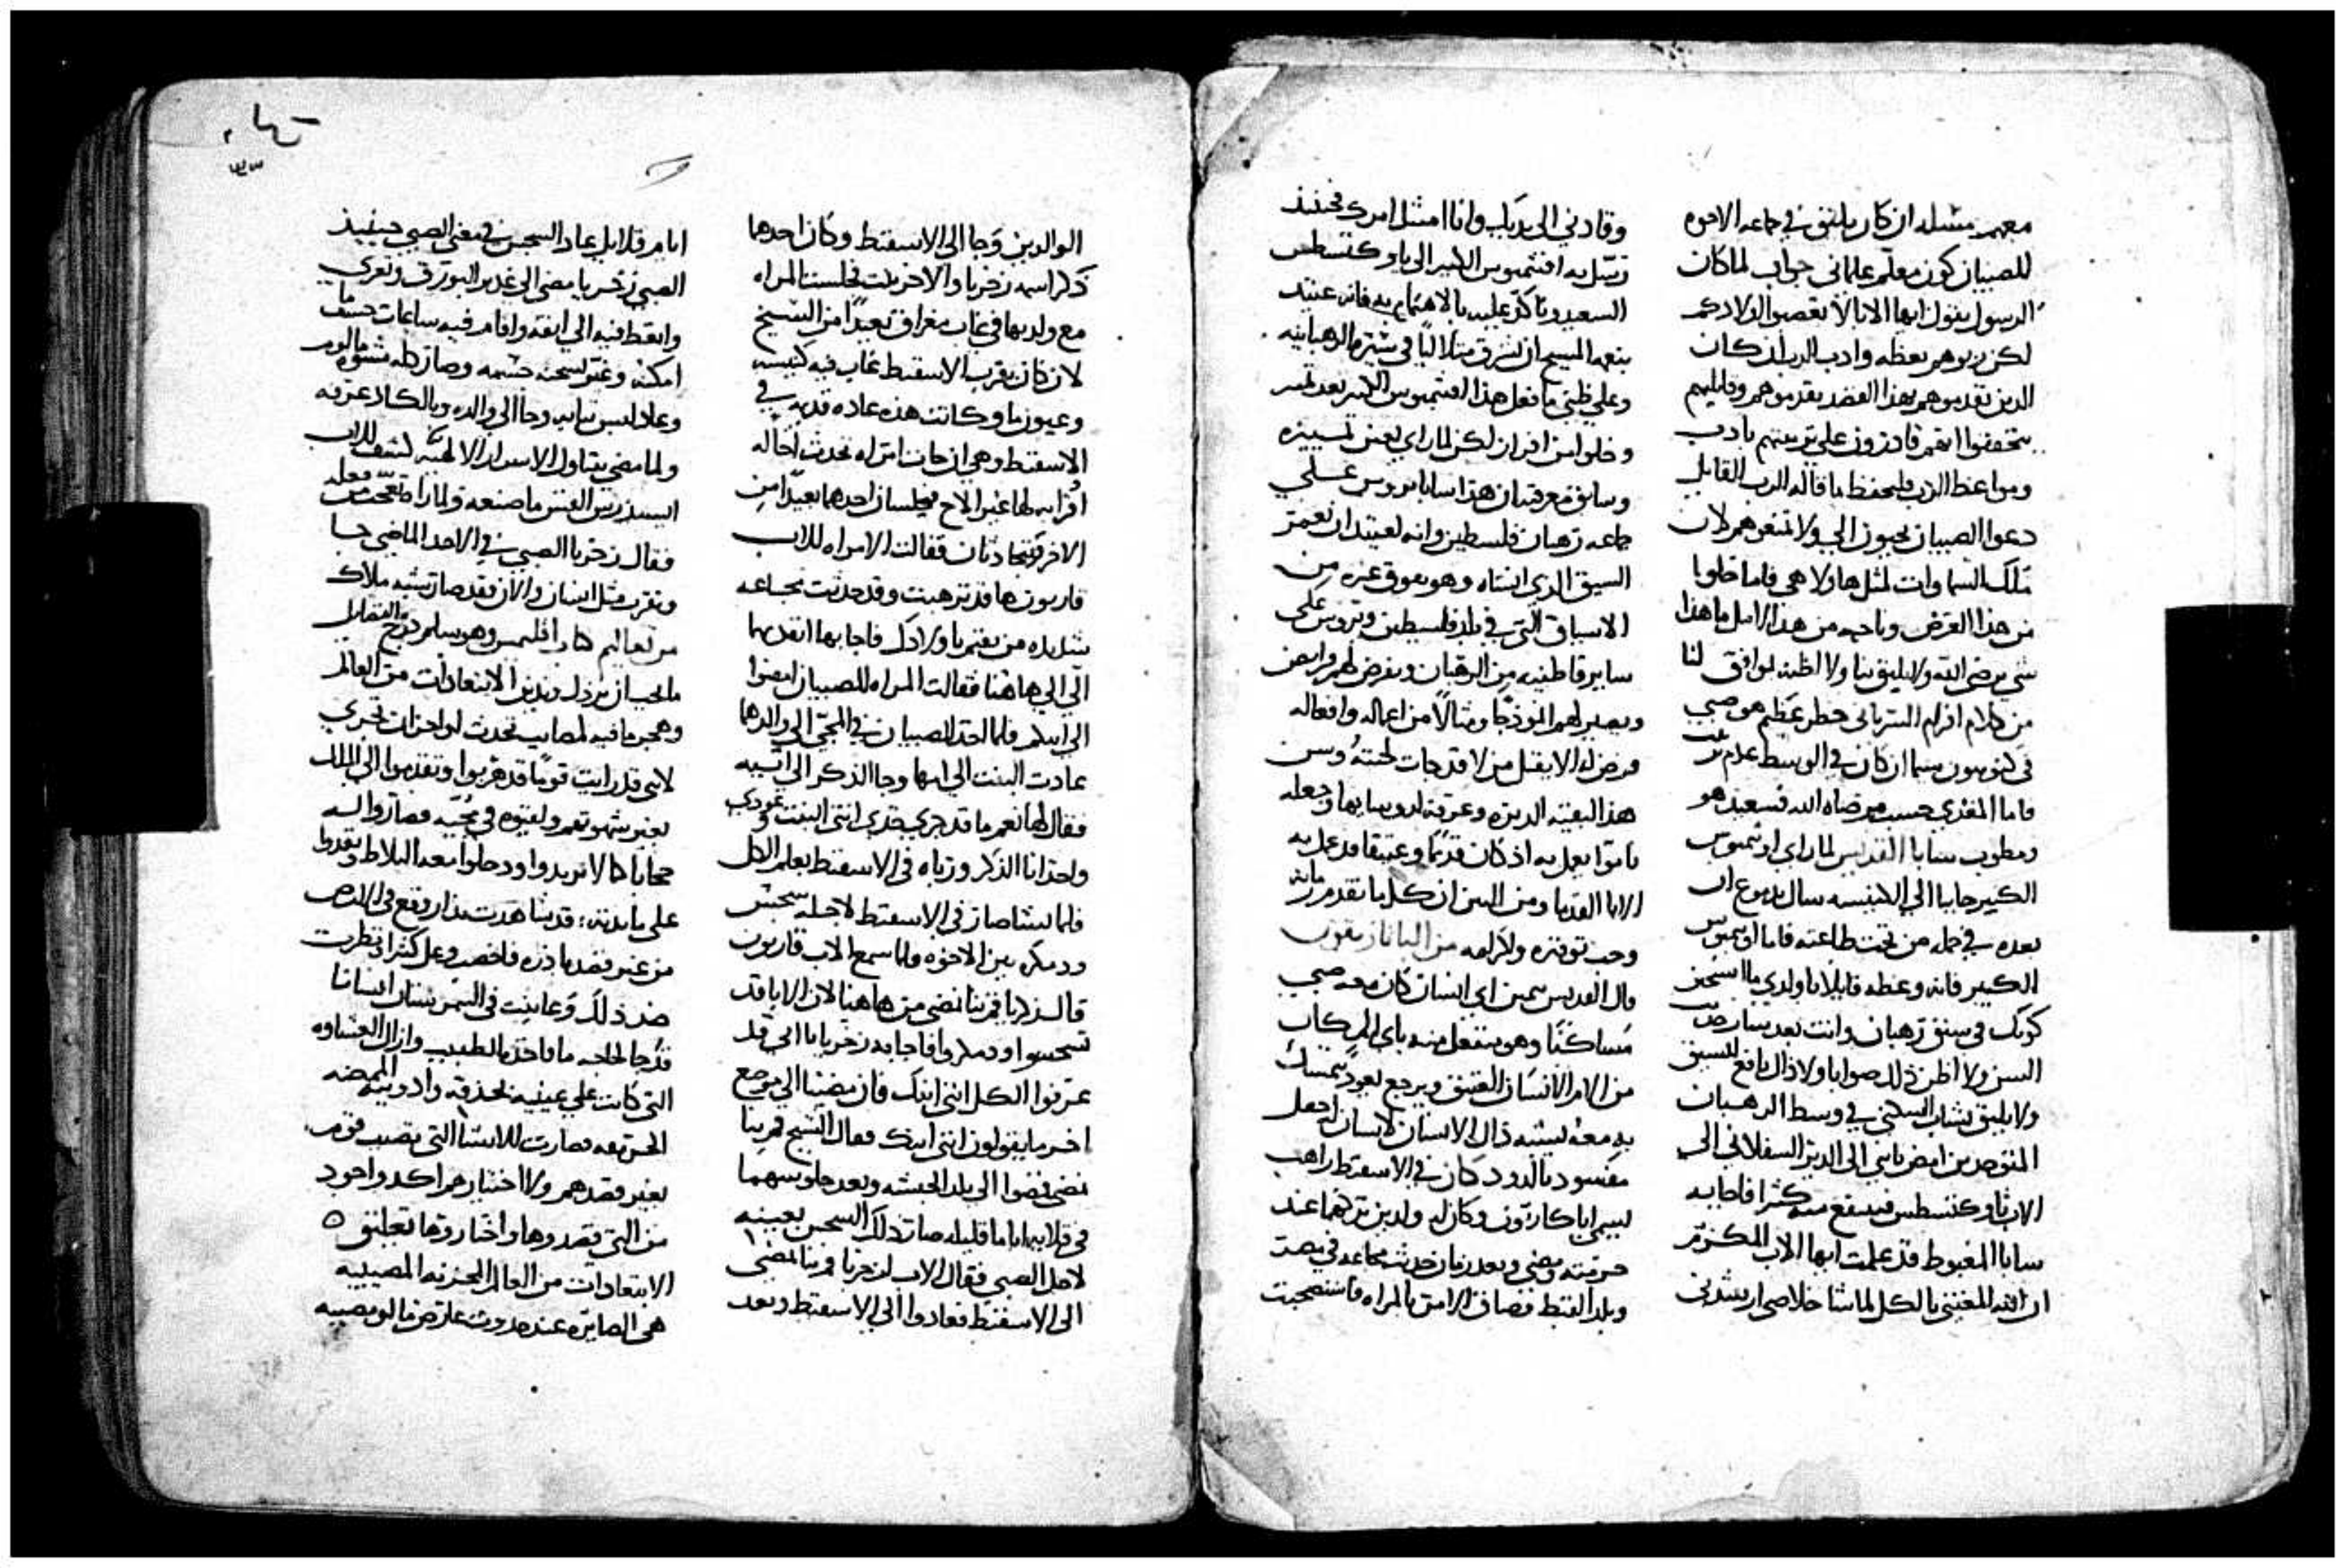 معهم مثله ان كان يليق في جماعه الاخوه
للصبيان كون معلم علماني جواب لما كان
الرسول يقول ايها الابا لا تغضبوا اولادكم
لكن ربوهم بعظه وادب الرب لان كان
الذين تقدموهم بهذا القصد
انهم قادرون علي تربيتهم بادب
ومواعظ الرب فليحفظ ما قاله الرب القايل
دعوا الصبيان يجيون الي ولا تمنعوهم لان
ملك السماوات لمثل هاولا هي فاما
من هذا الغرض من هذا الامل ما هذا
شي يرضي الله ولا يليق بنا ولا اظنه يوافق لنا
من كلام افرام السرياني خطر عظيم هو صبي
في كنوبيون سيما ان كان في الوسط
فاما المغدي حسب مرضاة الله فسعيد هو
ومطوب سابا القديس لما راي اوتيميوس
الكبير جايا الي الكنيسه سال بدموع ان
يعده في جمله من تحت طاعته فاما اوتيميوس
الكبير فانه وعظه قايلا يا ولدي ما استحسن
كونك في سيق رهبان وانت بعد
السن ولا اظن ذلك صوابا ولا ذاك نافع للسيق
ولا يليق بشاب السكني في وسط الرهبان
المتوحدين امض يا بني الي الدير السفلاني الي
الاب ثاوكتسطس فتنتفع منه كثيرا فاجابه
سابا المغبوط قد علمت ايها الاب المكرم
ان الله المعتني بالكل لما شا خلاصي ارشدني
وقادني الي يديك وانا امتثل امرك فحينيذ
ارسله افتيميوس الكبير الي ثاوكتسطس
السعيد وتاكد عليه بالاهتمام به فانه عتيد
بنعمه المسيح ان يشرق متلالئا في سيره الرهبانيه
وعلي ظني ما فعل هذا افتيميوس الكبير بعد تميز
وخلوا من افراز لكن لما راي بعين تمييزه
وسابق معرفته ان هذا سابا يتروس علي
جماعه رهبان فلسطين وانه لعتيد ان يعمر
السيق الذي انشاه وهو يفوق غيره من
الاسياق التي في بلد فلسطين ويتروس علي
ساير قاطنيه من الرهبان ويفرض لهم فرايض
ويصير لهم انموذجا ومثالا من اعماله وافعاله
فرض له الا يقبل من لا قد جات لحيته وسن
هذا البقيه الديره وعرفه لروسايها وجعله
ناموسا يعمل به اذ كان قديما وعتيقا قد عمل به
الابا القدما ومن البين ان كل ما تقدم زمانه
وجب توقيره واكرامه من البابا نيقون
قال القديس سمين اي انسان كان معه صبي
مساكنا وهو ينفعل منه باي الحركات
من الامر الانسان العتيق ويرجع يعود يتمسك
به معه يشبه ذاك الانسان لانسان اجعل
مفسود بالدود كان في الاسقيط راهب
يسمي ابا كاريون وكان له ولدين تركهما عند
حرمته ومضي وبعد زمان حدث مجاعه في مصر
وبلد القبط فضاق الامر بالمراه فاستصحبت
الوالدين وجا الي الاسقيط وكان احدهما
ذكر اسمه زخريا والاخر بنت فجلست المراه
مع ولديها في غاب مغراق بعيدا من الشيخ
لان كان بقرب الاسقيط غاب فيه كنيسه
وعيون ما وكانت هذه عاده قديمه في
الاسقيط وهي ان جات امراه تحدث اخا له
اقرابه لها غير الاخ يجلسان احدهما بعيدا من
الاخر ويتحادثان فقالت الامراه للاب
قاريون ها قد ترهبت وقد حدثت مجاعه
شديده من يقيم باولادك فاجابها انفديهما
الي الي هاهنا فقالت المراه للصبيان امضوا
الي ابيكم فلما اخذ الصبيان في المجي الي والدها
عادت البنت الي امها وجا الذكر الي ابيه
فقال لها نعم ما قد جري خذي انتي البنت وعودي
واخذ انا الذكر ورباه في الاسقيط بعلم الكل
فلما نشا صار في الاسقيط لاجله سجس
ودمدمه بين الاخوه ولما سمع الاب قاريون
قال لزخريا قم بنا نمضي من هاهنا لان الابا قد
تسجسوا ودمدموا فاجابه زخريا يا ابي قد
عرفوا الكل انني ابنك فان مضينا الي موضع
اخر ما يقولون انني ابنك فقال الشيخ قم بنا
نمضي فمضوا الي بلد الحبشه وبعد جلوسهما
في قلايه اياما قليله صار ذلك السجس بعينه
لاجل الصبي فقال الاب لزخريا قم بنا نمضي
الي الاسقيط فعادوا الي الاسقيط وبعد
ايام قلايل عاد السجس في معني الصبي حينيذ
الصبي زخريا مضي الي غدير البورق وتعري
وانغط فيه الي انفه واقام فيه ساعات حسب ما
امكنه وغير سحنه جسمه وصار كله مشوه
وعاد لبس ثيابه وجا الي والده وبالكاد عرفه
ولما مضي يتناول الاسرار الالهيه كشف للاب
ايسيذرس القس ما صنعه ولما راه تعجب من فعله
فقال زخريا الصبي في الاحد الماضي جا
وتقرب مثل انسان والان فقد صار يشبه ملاك
من تعاليم كتاب اقليمس وهو سلم درج الفضايل
ما يجب ان يرذل ويدين الابتعادات من العالم
وهجر ما فيه لمصايب تحدث او احزان تجري
لاني قد رايت قوما قد هربوا وتقدموا الي الملك
بغير شهوتهم ولقيوه في مجيه فصاروا له
حجابا كما لا يريدوا ودخلوا معه البلاط وتغدوا
علي مايدته قد شاهدت بذار وقع في الارض
من غير قصد باذره فاخصب وعمل كثيرا ونظرت
ضد ذلك وعاينت في البيمرستان انسانا
قد جا لحاجه ما فاخذه الطبيب وازال الغشاوه
التي كانت علي عينيه بحذقه وادويته الممضه
الحريقه فصارت للاشيا التي تصيب قوم
بغير قصدهم ولا اختيارهم اكد واجود
من التي قصدوها واختاروها تعليق
الابتعادات من العالم المحزنه المصيبيه
هي الصايره عند حدوث عارض ما او مصيبه